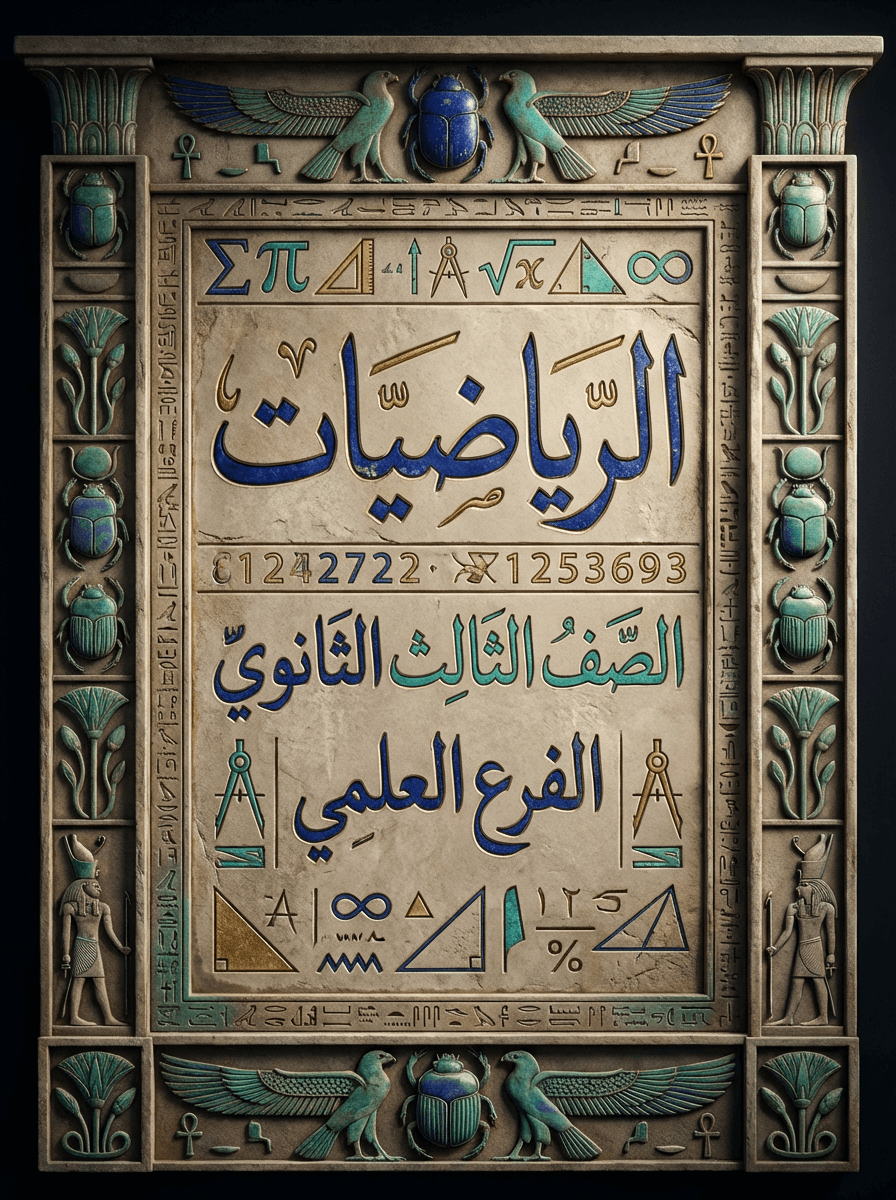 Σ π √x ∞
الرِّيَاضِيَّات
1242722 · 1253693
الصَّفُ الثَالِث الثَانويّ
الفرع العلمِي
A ∞ ١٢
%